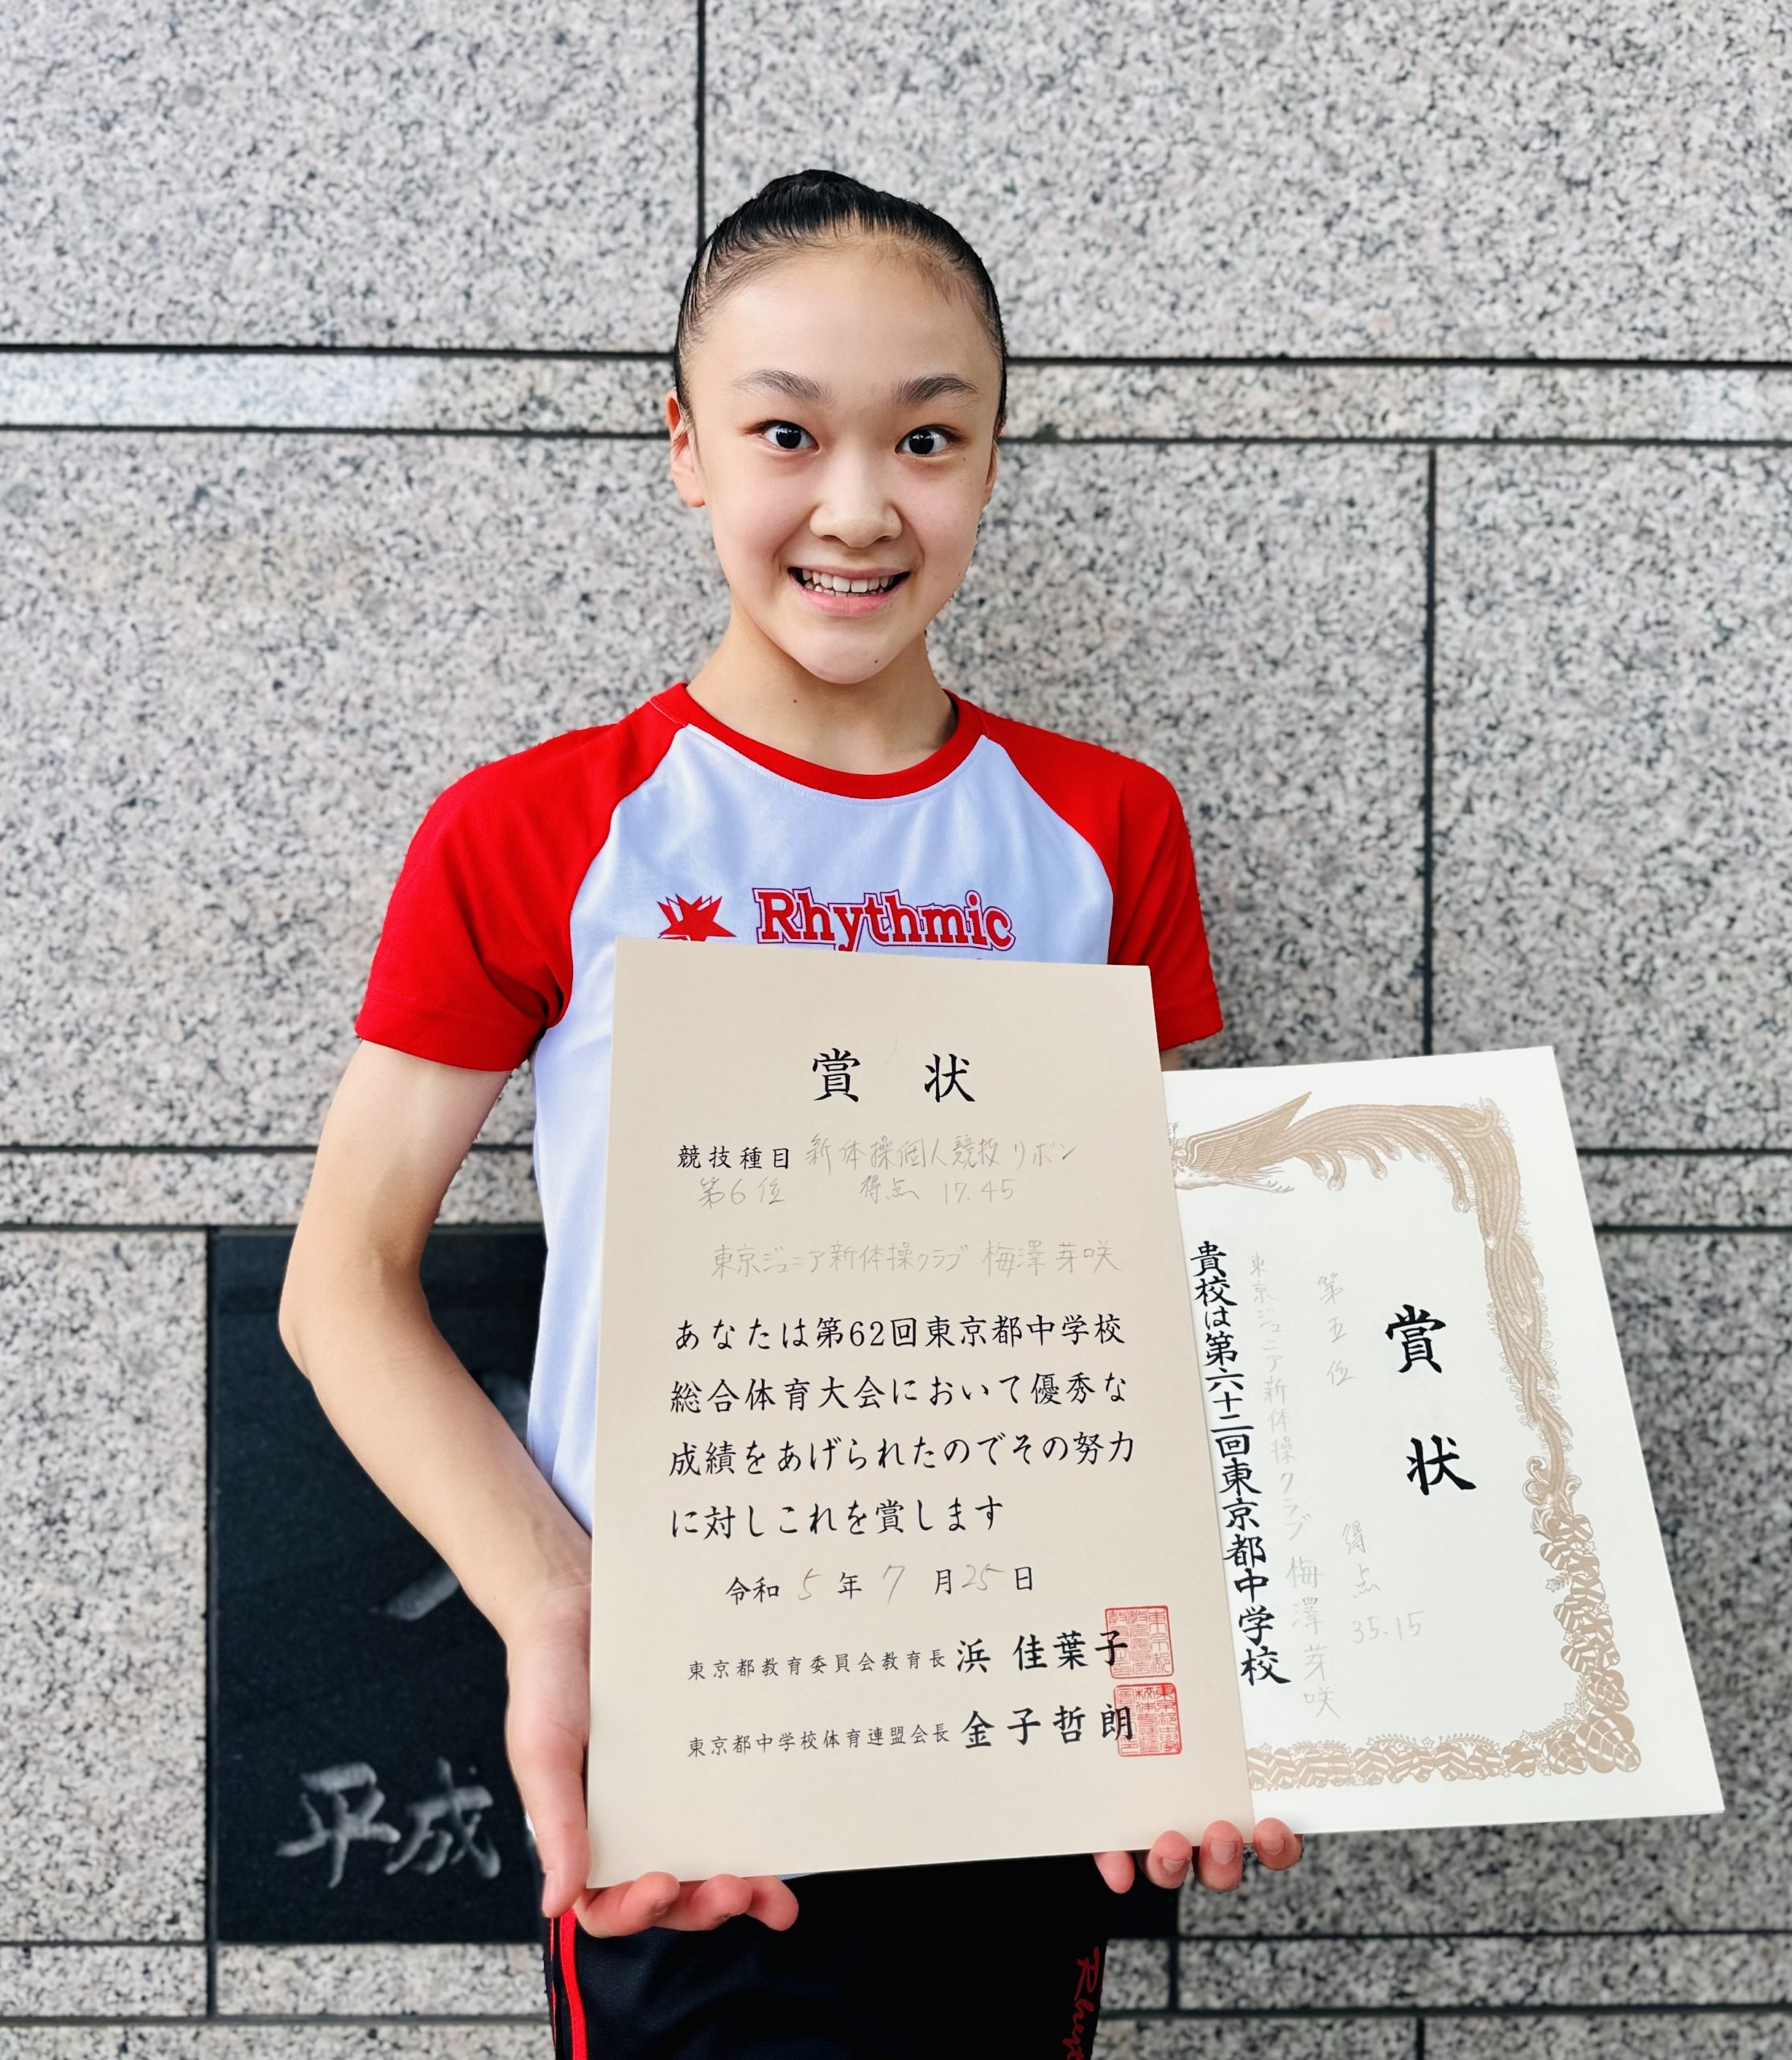 Rhythmic
賞 状
競技種目 新体操個人競技 リボン
第6位 得点 17.45
東京ジュニア新体操クラブ 梅澤 芽咲
あなたは第62回東京都中学校
総合体育大会において優秀な
成績をあげられたのでその努力
に対しこれを賞します
令和 5 年 7 月 25 日
東京都教育委員会教育長 浜 佳葉子
東京都中学校体育連盟会長 金子哲朗
賞 状
第五位 得点 35.15
東京ジュニア新体操クラブ 梅澤芽咲
貴校は第六十二回東京都中学校
平成